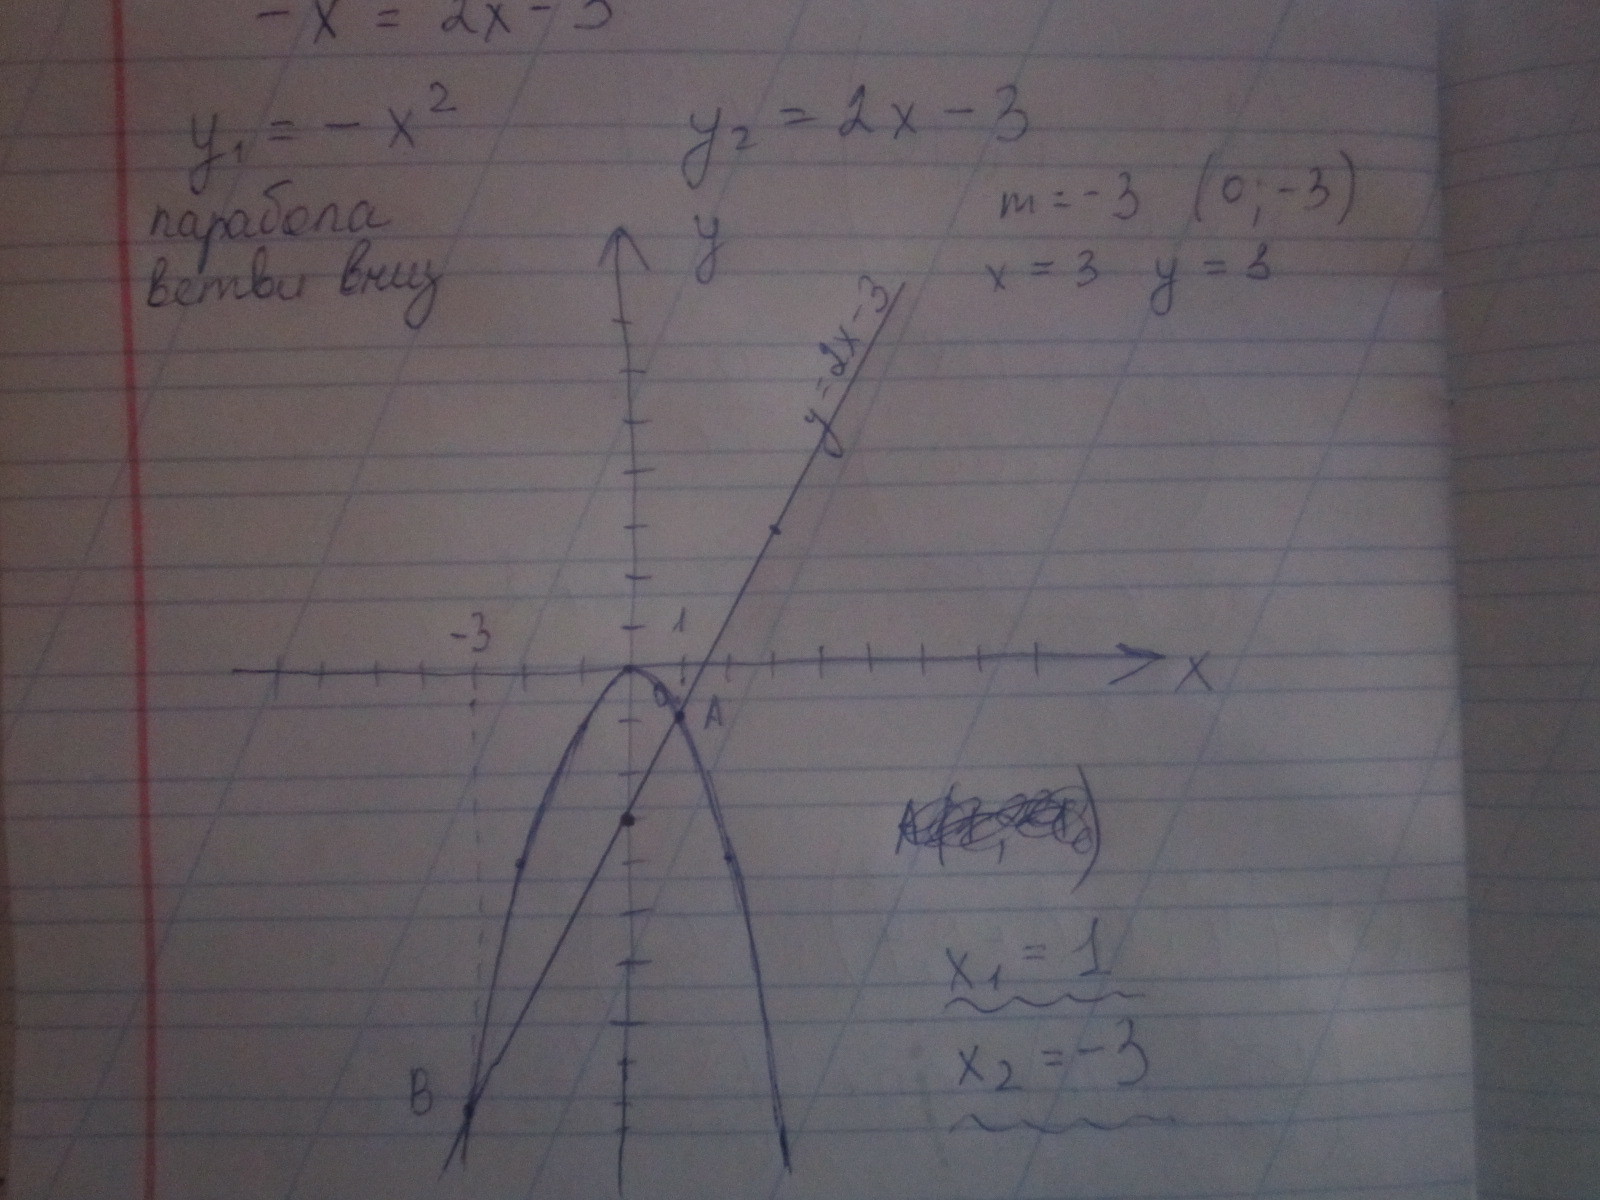 -x = 2x - 3
y₁ = -x² y₂ = 2x - 3
парабола
ветви вниз
m = -3 (0; -3)
x = 3 y = 3
y
y = 2x - 3
-3 1
x
0 A
x₁ = 1
x₂ = -3
B